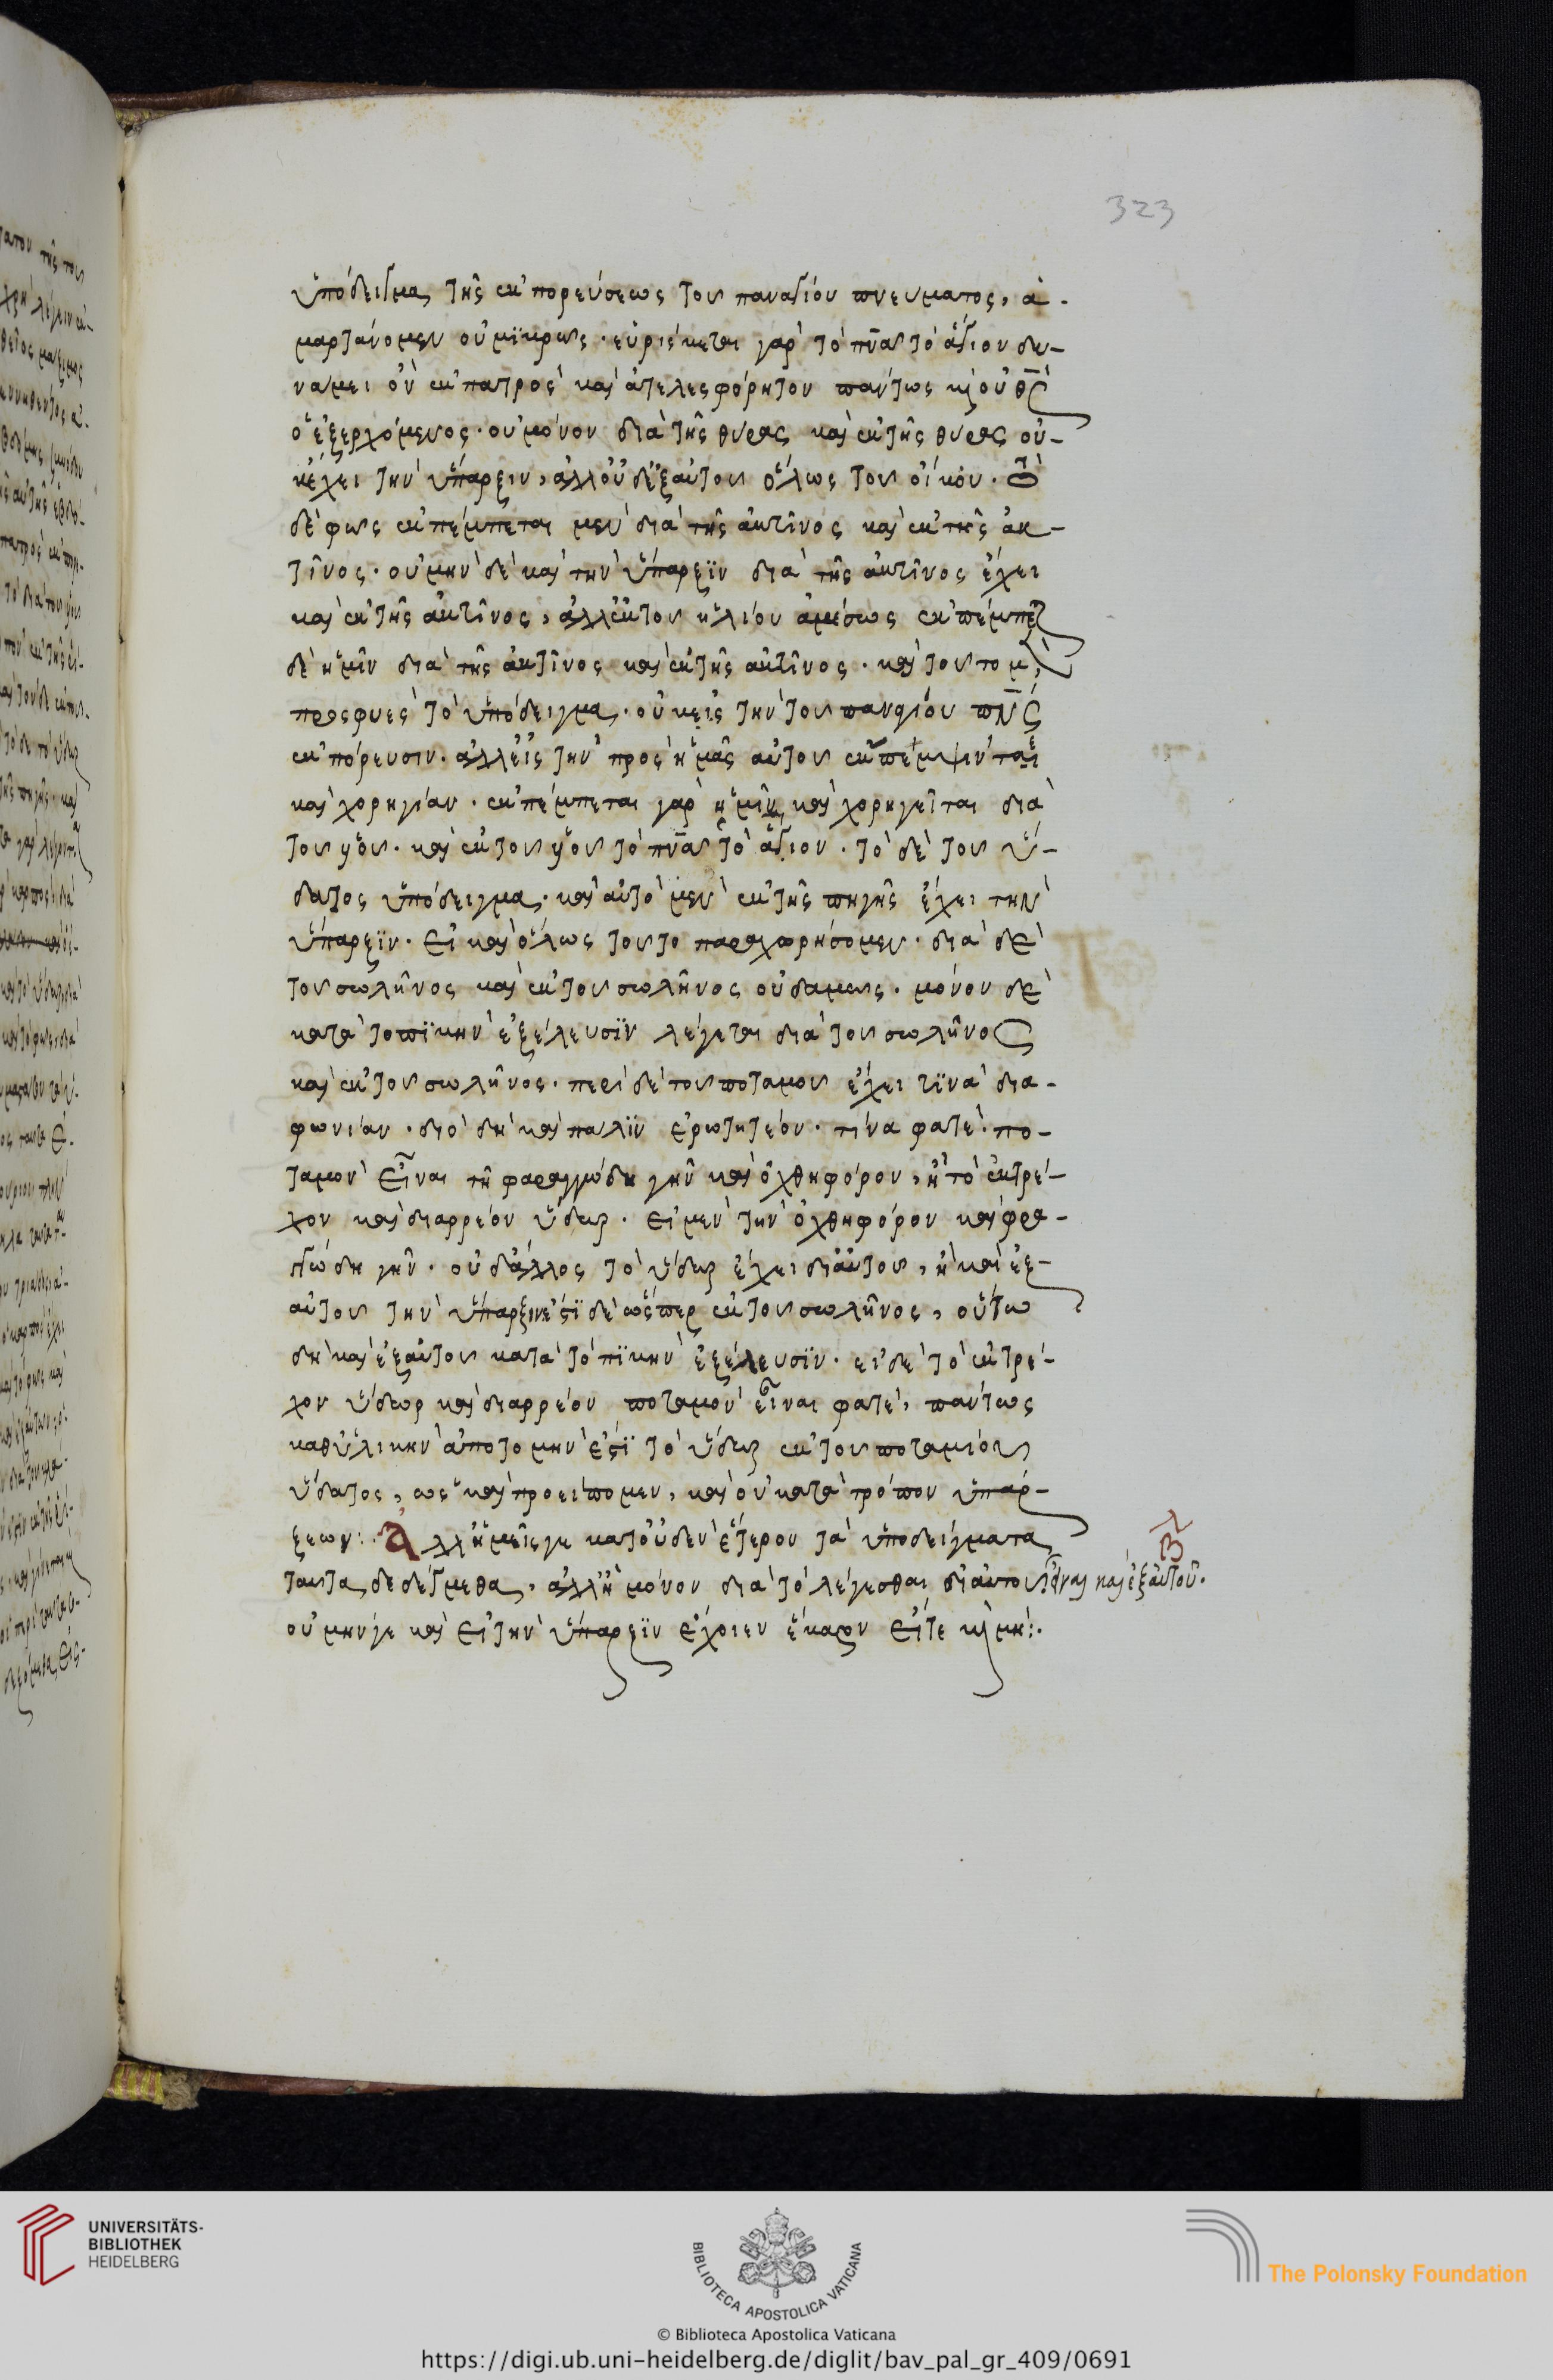 323
ὑπόδειγμα τῆς ἐκπορεύσεως τοῦ παναγίου πνεύματος, ἁ-
μαρτάνομεν οὐ μϊκρῶς· εὑρίσκεται γὰρ τὸ πνᾶ τὸ ἅγιον δυ-
νάμει ὂν ἐκ πατρὸς καὶ ἀτελεσφόρητον πάντως
ὁ ἐξερχόμενος· οὐ μόνον διὰ τῆς θύρας καὶ ἐκ τῆς θύρας οὐ-
κ ἔχει τὴν ὕπαρξιν, ἀλλ οὐδ ἐξ αὐτοῦ ὅλως τοῦ οἴκου. Τὸ
δὲ φῶς ἐκπέμπεται μὲν διὰ τῆς ἀκτῖνος καὶ ἐκ τῆς ἀκ-
τῖνος· οὐ μὴν δὲ καὶ τὴν ὕπαρξϊν διὰ τῆς ἀκτῖνος ἔχει
καὶ ἐκ τῆς ἀκτῖνος, ἀλλ ἐκ τοῦ ἡλίου ἀμέσως ἐκπέμπεται
δὲ ἡμῖν διὰ τῆς ἀκτῖνος καὶ ἐκ τῆς ἀκτῖνος. καὶ τοῦτο μὲν
προσφυὲς τὸ ὑπόδειγμα· οὐκ εἰς τὴν τοῦ παναγίου πνς
ἐκπόρευσιν· ἀλλ εἰς τὴν πρὸς ἡμᾶς αὐτοῦ ἔκπεμψιν
καὶ χορηγίαν· ἐκπέμπεται γὰρ ἡμῖν καὶ χορηγεῖται διὰ
τοῦ υἱοῦ· καὶ ἐκ τοῦ υἱοῦ τὸ πνᾶ τὸ ἅγιον. τὸ δὲ τοῦ ὕ-
δατος ὑπόδειγμα· καὶ αὐτὸ μὲν ἐκ τῆς πηγῆς ἔχει τὴν
ὕπαρξϊν· εἰ καὶ ὅλως τοῦτο παραχωρήσομεν· διὰ δὲ
τοῦ σωλῆνος καὶ ἐκ τοῦ σωλῆνος οὐδαμῶς· μόνον δὲ
κατὰ τοπϊκὴν ἐξέλευσϊν λέγεται διὰ τοῦ σωλῆνος
καὶ ἐκ τοῦ σωλῆνος· περὶ δὲ τοῦ ποταμοῦ ἔχει τϊνὰ δια-
φωνίαν· διὸ δὴ καὶ πάλϊν ἐρωτητέον· τίνα φατὲ πο-
ταμὸν εἶναι τὴ φαραγγώδη γῆν καὶ ὀχθηφόρον, ἢ τὸ ἐκτρέ-
χον καὶ διαρρέον ὕδωρ· εἰ μὲν τὴν ὀχθηφόρον καὶ φρα-
γγώδη γῆν· οὐδ ἄλλος τὸ ὕδωρ ἔχει δι αὐτοῦ, ἢ καὶ ἐξ
αὐτοῦ τὴν ὕπαρξιν ἐστϊ δὲ ὥσπερ ἐκ τοῦ σωλῆνος, οὕτω
δὴ καὶ ἐξ αὐτοῦ κατὰ τὸ πϊκὴν ἐξέλευσϊν· εἰ δὲ τὸ ἐκτρέ-
χον ὕδωρ καὶ διαρρέον ποταμὸν εἶναι φατὲ, πάντως
καθ ὑλικὴν ἀποτομὴν ἐστϊ τὸ ὕδωρ ἐκ τοῦ ποταμίου
ὕδατος, ὡς καὶ προείπομεν, καὶ οὐ κατὰ τρόπον ὑπάρ-
ξεων: Ἀλλ ἡμεῖς γε κατ οὐδὲν ἕτερον τὰ ὑποδείγματα
ταῦτα δεδέγμεθα, ἀλλ ἢ μόνον διὰ τὸ λέγεσθαι δι αὐτοῦ εἶναι καὶ ἐξ αὐτοῦ.
οὐ μήν γε καὶ εἰ τὴν ὕπαρξϊν ἔχοιεν ἕκαστον εἴτε καὶ μή:.
UNIVERSITÄTS-
BIBLIOTHEK
HEIDELBERG
BIBLIOTECA APOSTOLICA VATICANA
The Polonsky Foundation
© Biblioteca Apostolica Vaticana
https://digi.ub.uni-heidelberg.de/diglit/bav_pal_gr_409/0691